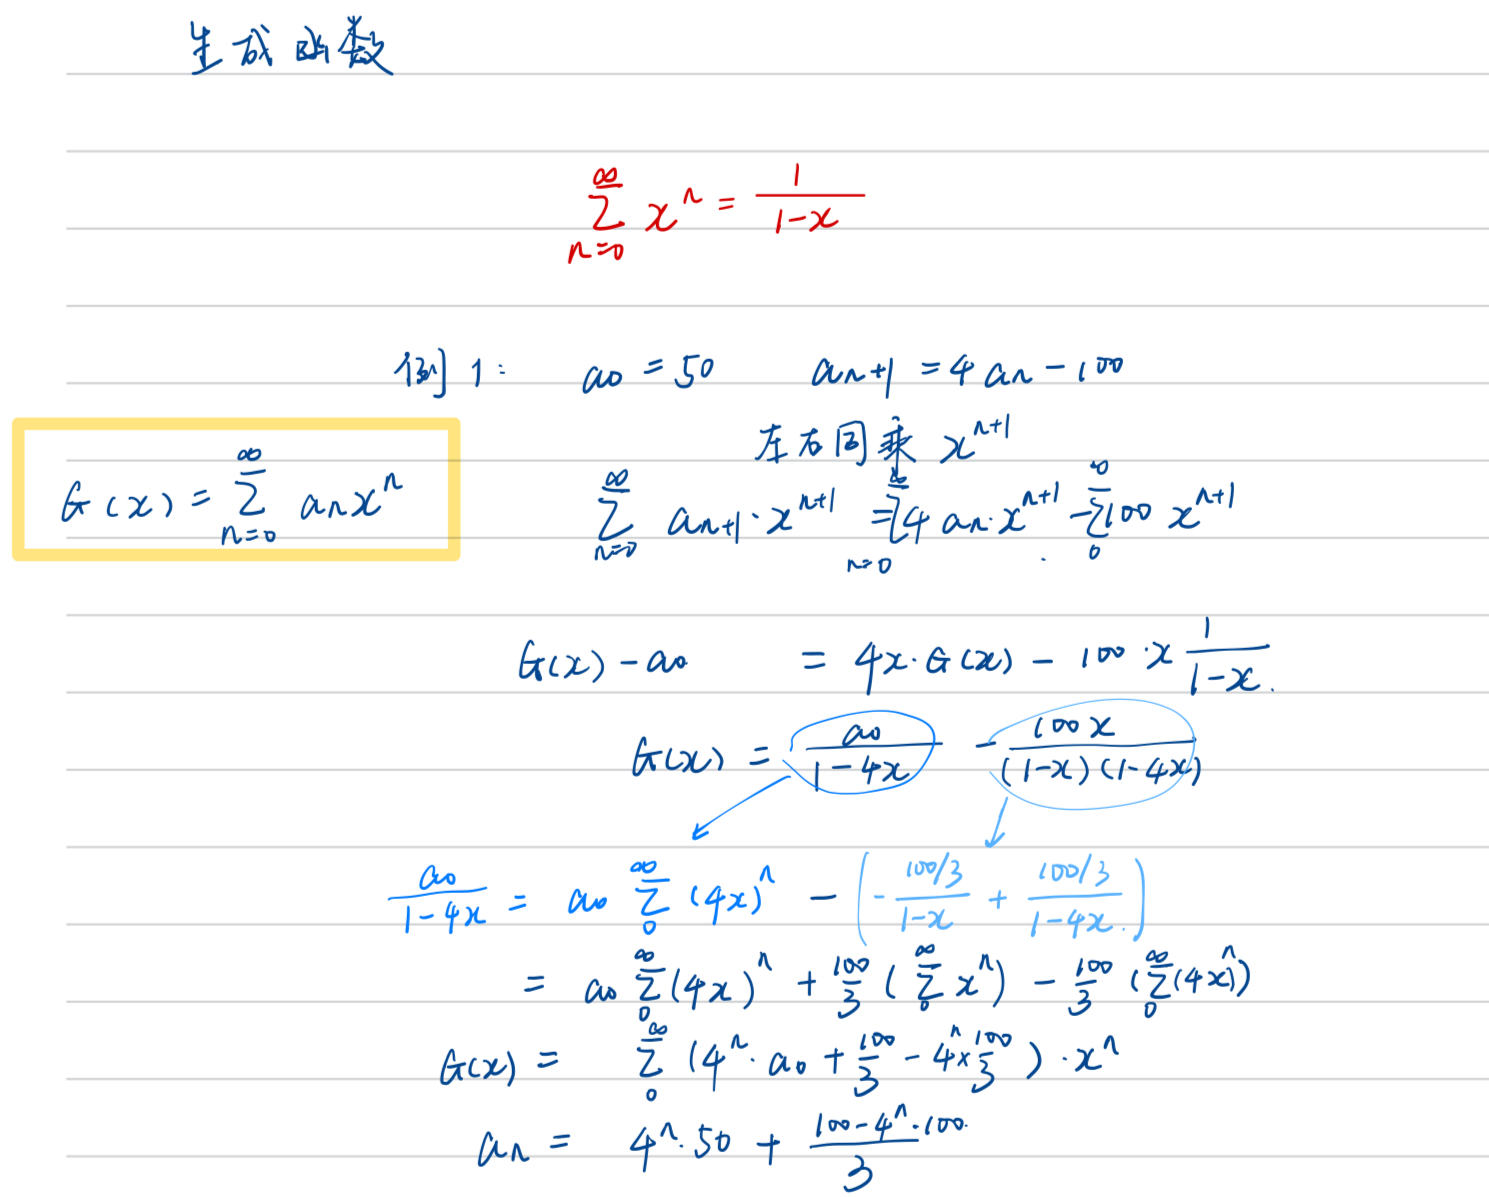 生成函数
∑_{n=0}^{∞} x^n = 1/(1-x)
例1: a0 = 50 an+1 = 4an - 100
左右同乘 x^{n+1}
G(x) = ∑_{n=0}^{∞} anx^n
∑_{n=0}^{∞} an+1 · x^{n+1} = ∑_{n=0}^{∞} 4an · x^{n+1} - ∑_{0}^{∞} 100 x^{n+1}
G(x) - a0 = 4x · G(x) - 100 · x 1/(1-x)
G(x) = a0/(1-4x) - 100x/((1-x)(1-4x))
a0/(1-4x) = a0 ∑_{0}^{∞} (4x)^n - (-(100/3)/(1-x) + (100/3)/(1-4x))
= a0 ∑_{0}^{∞} (4x)^n + 100/3 (∑_{0}^{∞} x^n) - 100/3 (∑_{0}^{∞} (4x)^n)
G(x) = ∑_{0}^{∞} (4^n · a0 + 100/3 - 4^n × 100/3) · x^n
an = 4^n · 50 + (100 - 4^n · 100)/3